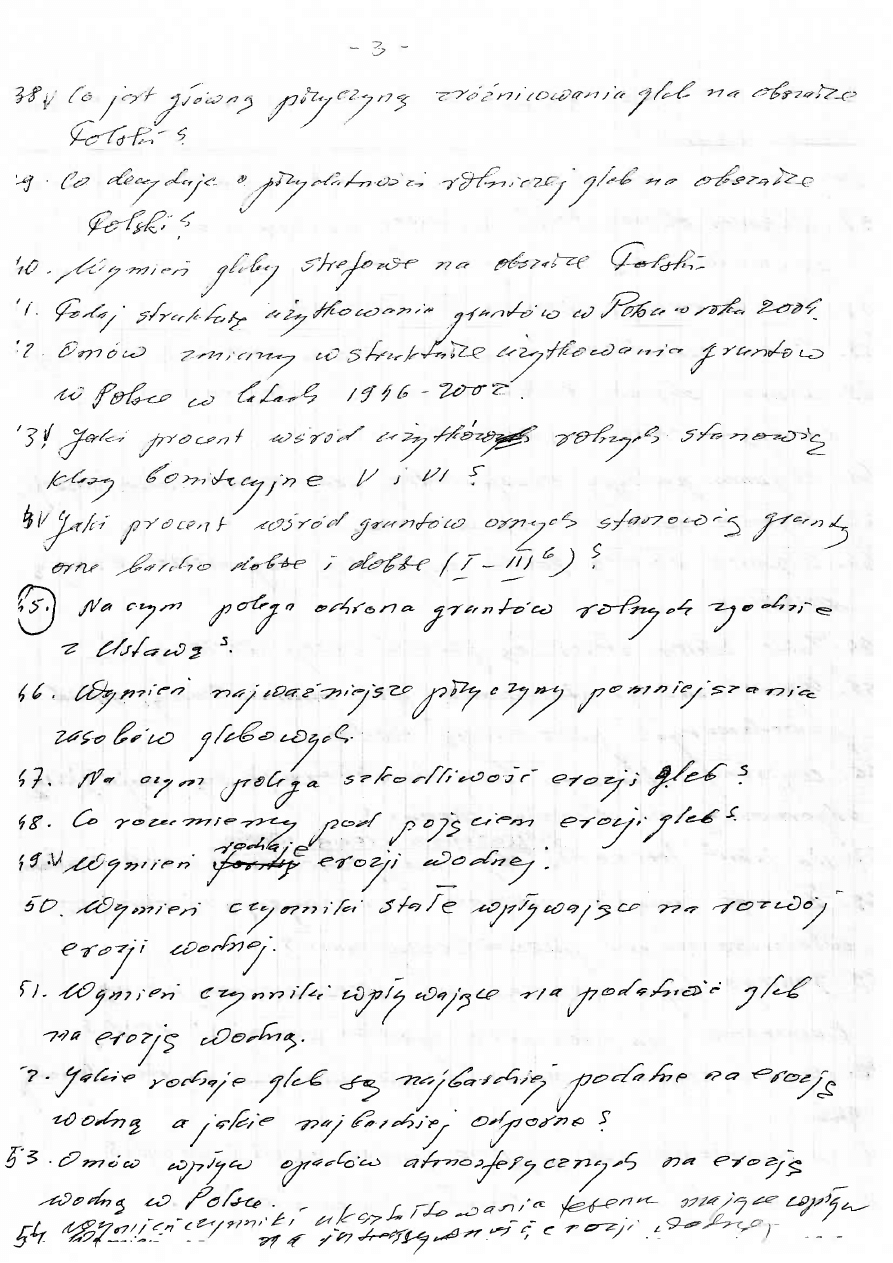 - 3 -
38 v Co jest główną przyczyną zróżnicowania gleb na obszarze
Polski?
9. Co decyduje o przydatności rolniczej gleb na obszarze
Polski?
40. Wymień gleby strefowe na obszarze Polski.
1. Podaj strukturę użytkowania gruntów w Polsce w roku 2004.
2. Omów zmiany w strukturze użytkowania gruntów
w Polsce w latach 1946-2002.
3 v Jaki procent wśród użytków rolnych stanowią
klasy bonitacyjne V i VI?
4 v Jaki procent wśród gruntów ornych stanowią grunty
orne bardzo dobre i dobre (I - III b)?
45. Na czym polega ochrona gruntów rolnych zgodnie
z Ustawą?
46. Wymień najważniejsze przyczyny pomniejszania
zasobów glebowych.
47. Na czym polega szkodliwość erozji gleb?
48. Co rozumiemy pod pojęciem erozji gleb?
rodzaje
49 v Wymień formy erozji wodnej.
50. Wymień czynniki stałe wpływające na rozwój
erozji wodnej.
51. Wymień czynniki wpływające na podatność gleb
na erozję wodną.
2. Jakie rodzaje gleb są najbardziej podatne na erozję
wodną a jakie najbardziej odporne?
53. Omów wpływ opadów atmosferycznych na erozję
wodną w Polsce.
54. Wymień czynniki ukształtowania terenu mające wpływ
na intensywność erozji wodnej